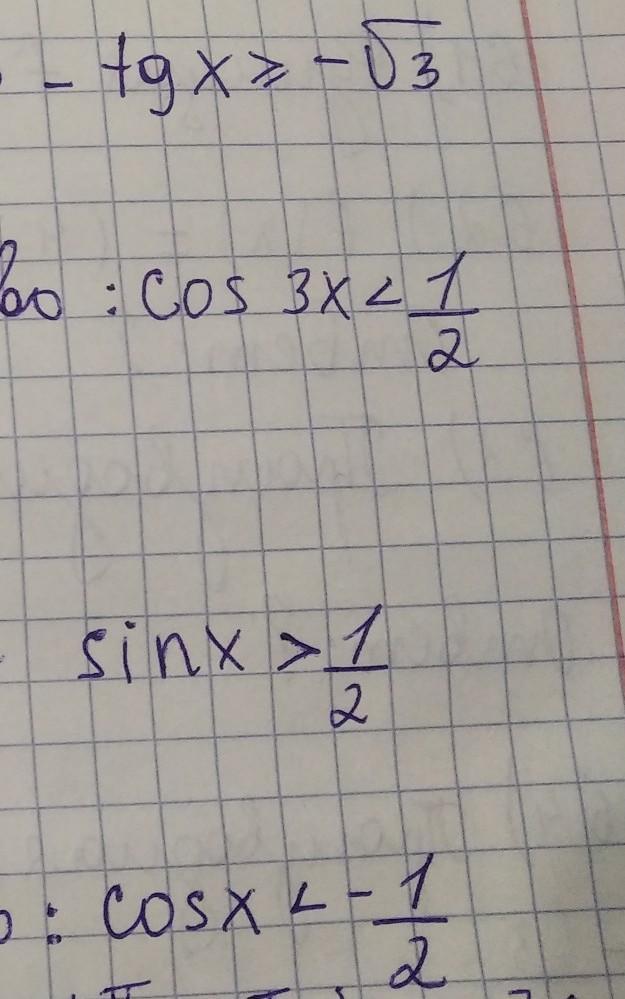 - tg x ≥ -√3
: cos 3x < 1/2
sin x > 1/2
: cos x < -1/2